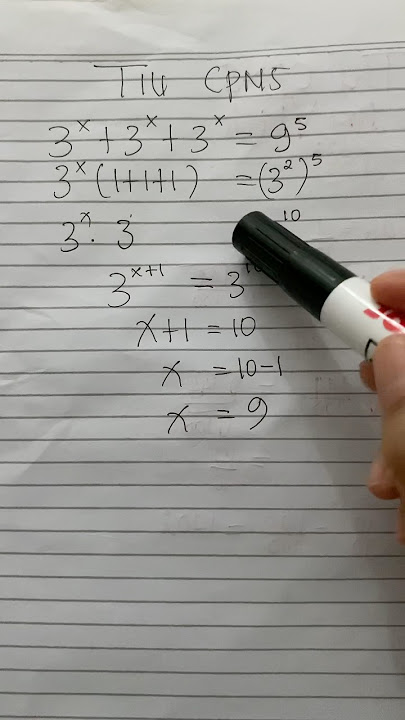 TIU CPNS
3^x + 3^x + 3^x = 9^5
3^x (1+1+1) = (3^2)^5
3^x . 3 10
3^{x+1} = 3^10
x+1 = 10
x = 10-1
x = 9